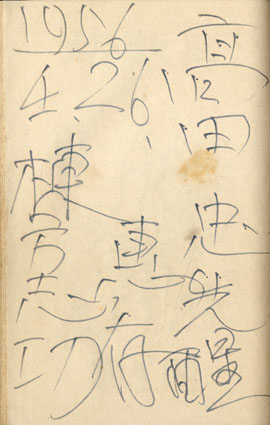 高田忠先醒
恵存
1956
4.26.
棟方志功